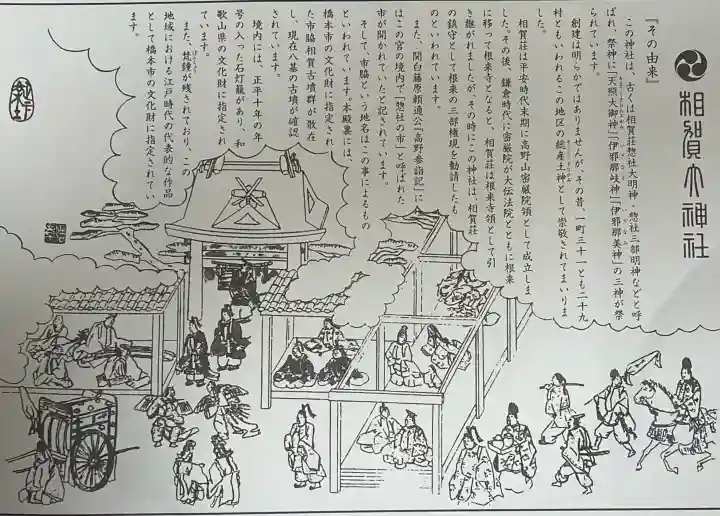 相賀大神社
『その由来』
この神社は、古くは相賀荘惣社大明神・惣社三部明神などと呼
ばれ、祭神に「天照大御神」「伊邪那岐神」「伊邪那美神」の三神が祭
られています。
創建は明らかではありませんが、その昔、一町三十一とも二十九
村ともいわれるこの地区の総産土神として崇敬されてまいりま
した。
相賀荘は平安時代末期に高野山密厳院領として成立しま
した。その後、鎌倉時代に密厳院が大伝法院とともに根来
に移って根来寺となると、相賀荘は根来寺領として引
き継がれましたが、その時にこの神社は、相賀荘
の鎮守として根来の三部権現を勧請したも
のといわれています。
また、関白藤原頼通公『高野参詣記』に
はこの宮の境内で「惣社の市」と呼ばれた
市が開かれていたと記されています。
そして、市脇という地名はこの事によるもの
といわれています。本殿裏には、
た市脇相賀古墳群が散在
し、現在八基の古墳が確認
されています。
境内には、正平十年の年
号の入った石灯籠があり、和
歌山県の文化財に指定され
ています。
また、梵鐘が残されており、この
地域における江戸時代の代表的な作品
として橋本市の文化財に指定されてい
ます。
橋本市の文化財に指定され